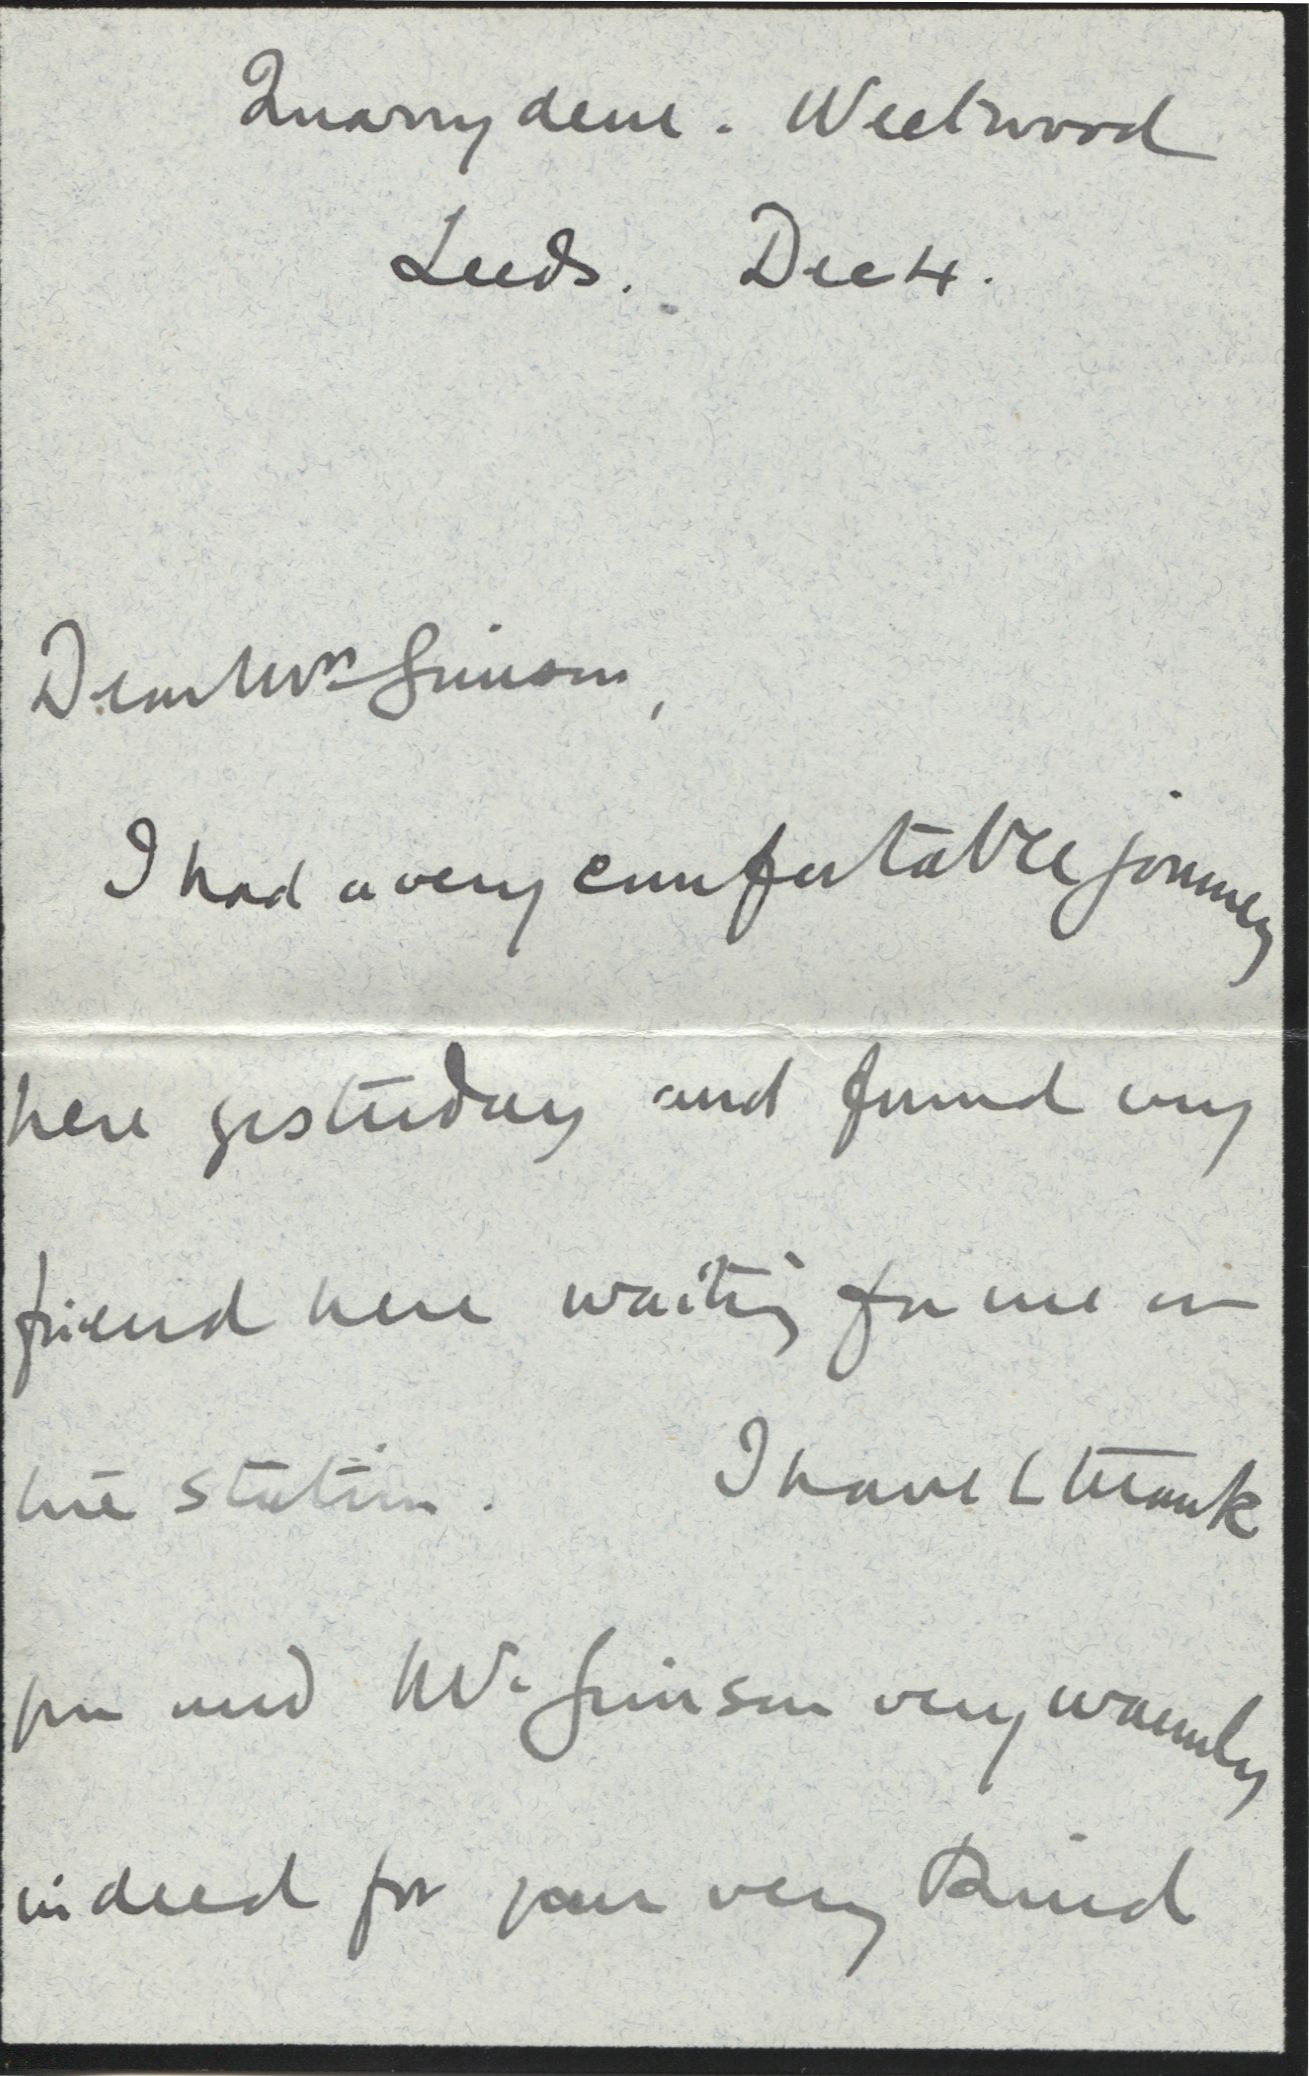 Quarrydene. Weetwood
Leeds. Dec 4.
Dear Mrs Simson,
I had a very comfortable journey
here yesterday and found my
friend here waiting for me in
the station. I have to thank
you and Mr. Simson very warmly
indeed for your very kind